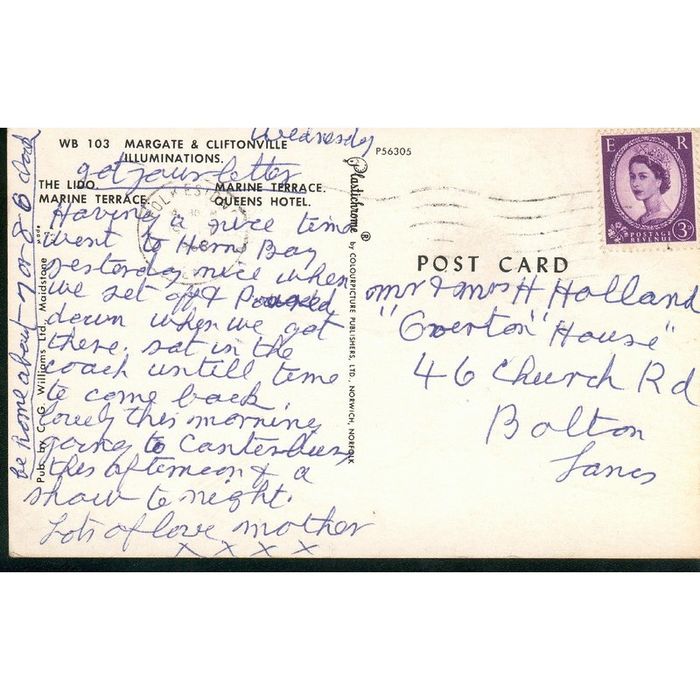 Wednesday
WB 103 MARGATE & CLIFTONVILLE
ILLUMINATIONS.
got your letter
THE LIDO. MARINE TERRACE.
MARINE TERRACE. QUEENS HOTEL.
Having a nice time
went to Herne Bay
yesterday nice when
we set off & Poured
down when we got
there. sat in the
coach untill time
to come back
lovely this morning
going to Canterbury
this afternoon & a
show to night.
Lots of love mother
x x x x
be home about 7 or 8 O
Pub. by C. G. Williams Ltd., Maidstone
Plastichrome ® by COLOURPICTURE PUBLISHERS, LTD., NORWICH, NORFOLK
P56305
POST CARD
E R
POSTAGE
REVENUE
3D
FOLKESTONE
mr & mrs H Holland
"Overton House"
46 Church Rd
Bolton
Lancs